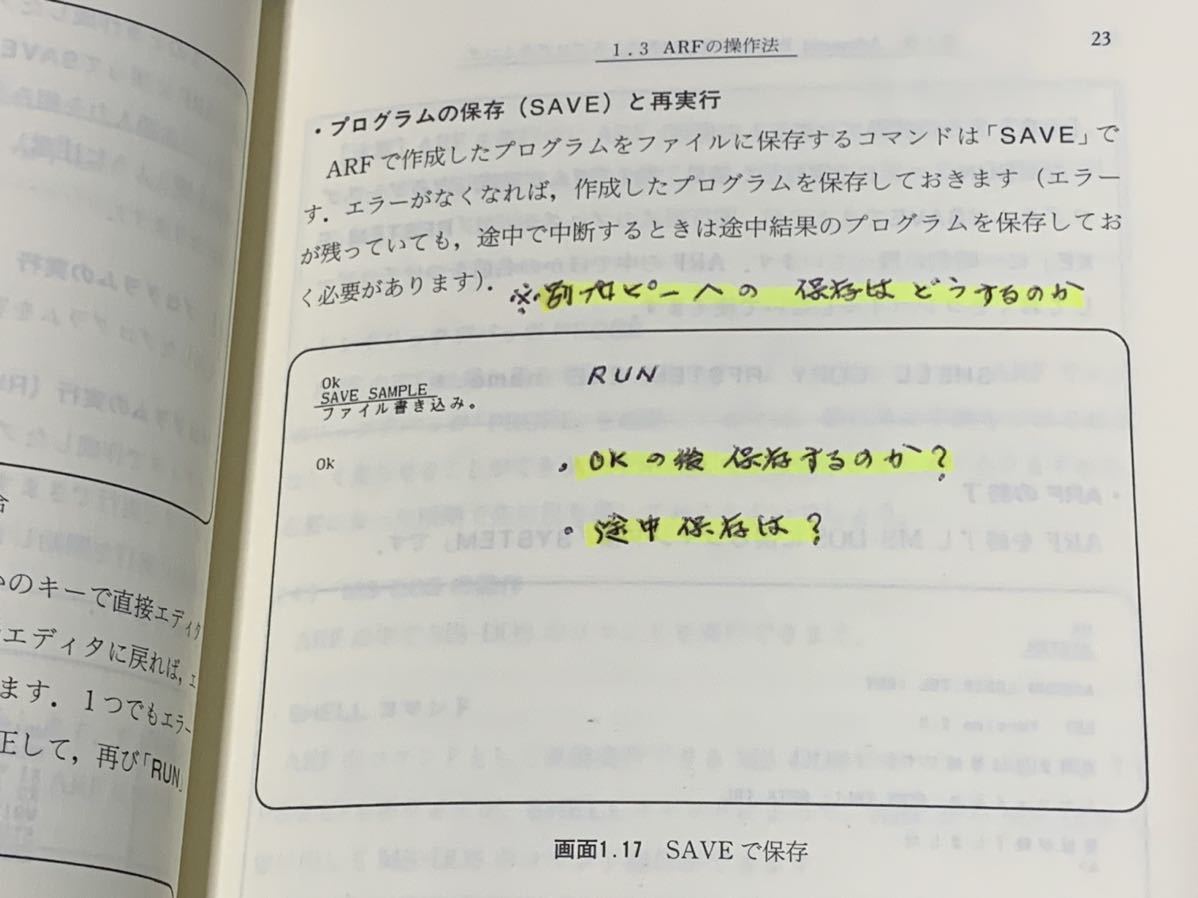 1.3 ARFの操作法
23
・プログラムの保存(SAVE)と再実行
ARFで作成したプログラムをファイルに保存するコマンドは「SAVE」で
す．エラーがなくなれば，作成したプログラムを保存しておきます（エラー
が残っていても，途中で中断するときは途中結果のプログラムを保存してお
く必要があります）．
※別プロピーへの 保存は どうするのか
Ok
SAVE SAMPLE
ファイル書き込み。
Ok
RUN
・OKの後 保存するのか?
・途中保存は?
画面1.17 SAVEで保存
のキーで直接エディタ
エディタに戻れば，エ
ます．1つでもエラー
正して，再び「RUN」